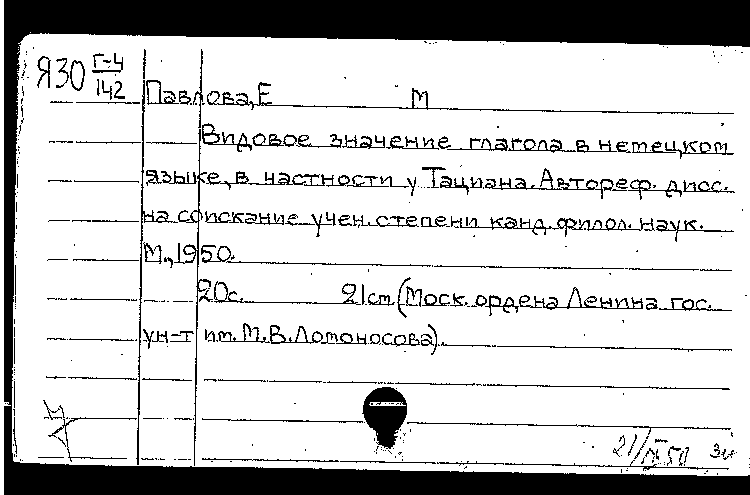 Я30 Г-4/142
Павлова, Е М
Видовое значение глагола в немецком
языке, в частности у Тациана. Автореф. дисс.
на соискание учен. степени канд. филол. наук.
М., 1950.
20с. 21см. (Моск. ордена Ленина гос.
ун-т им. М.В. Ломоносова).
21/IX 50